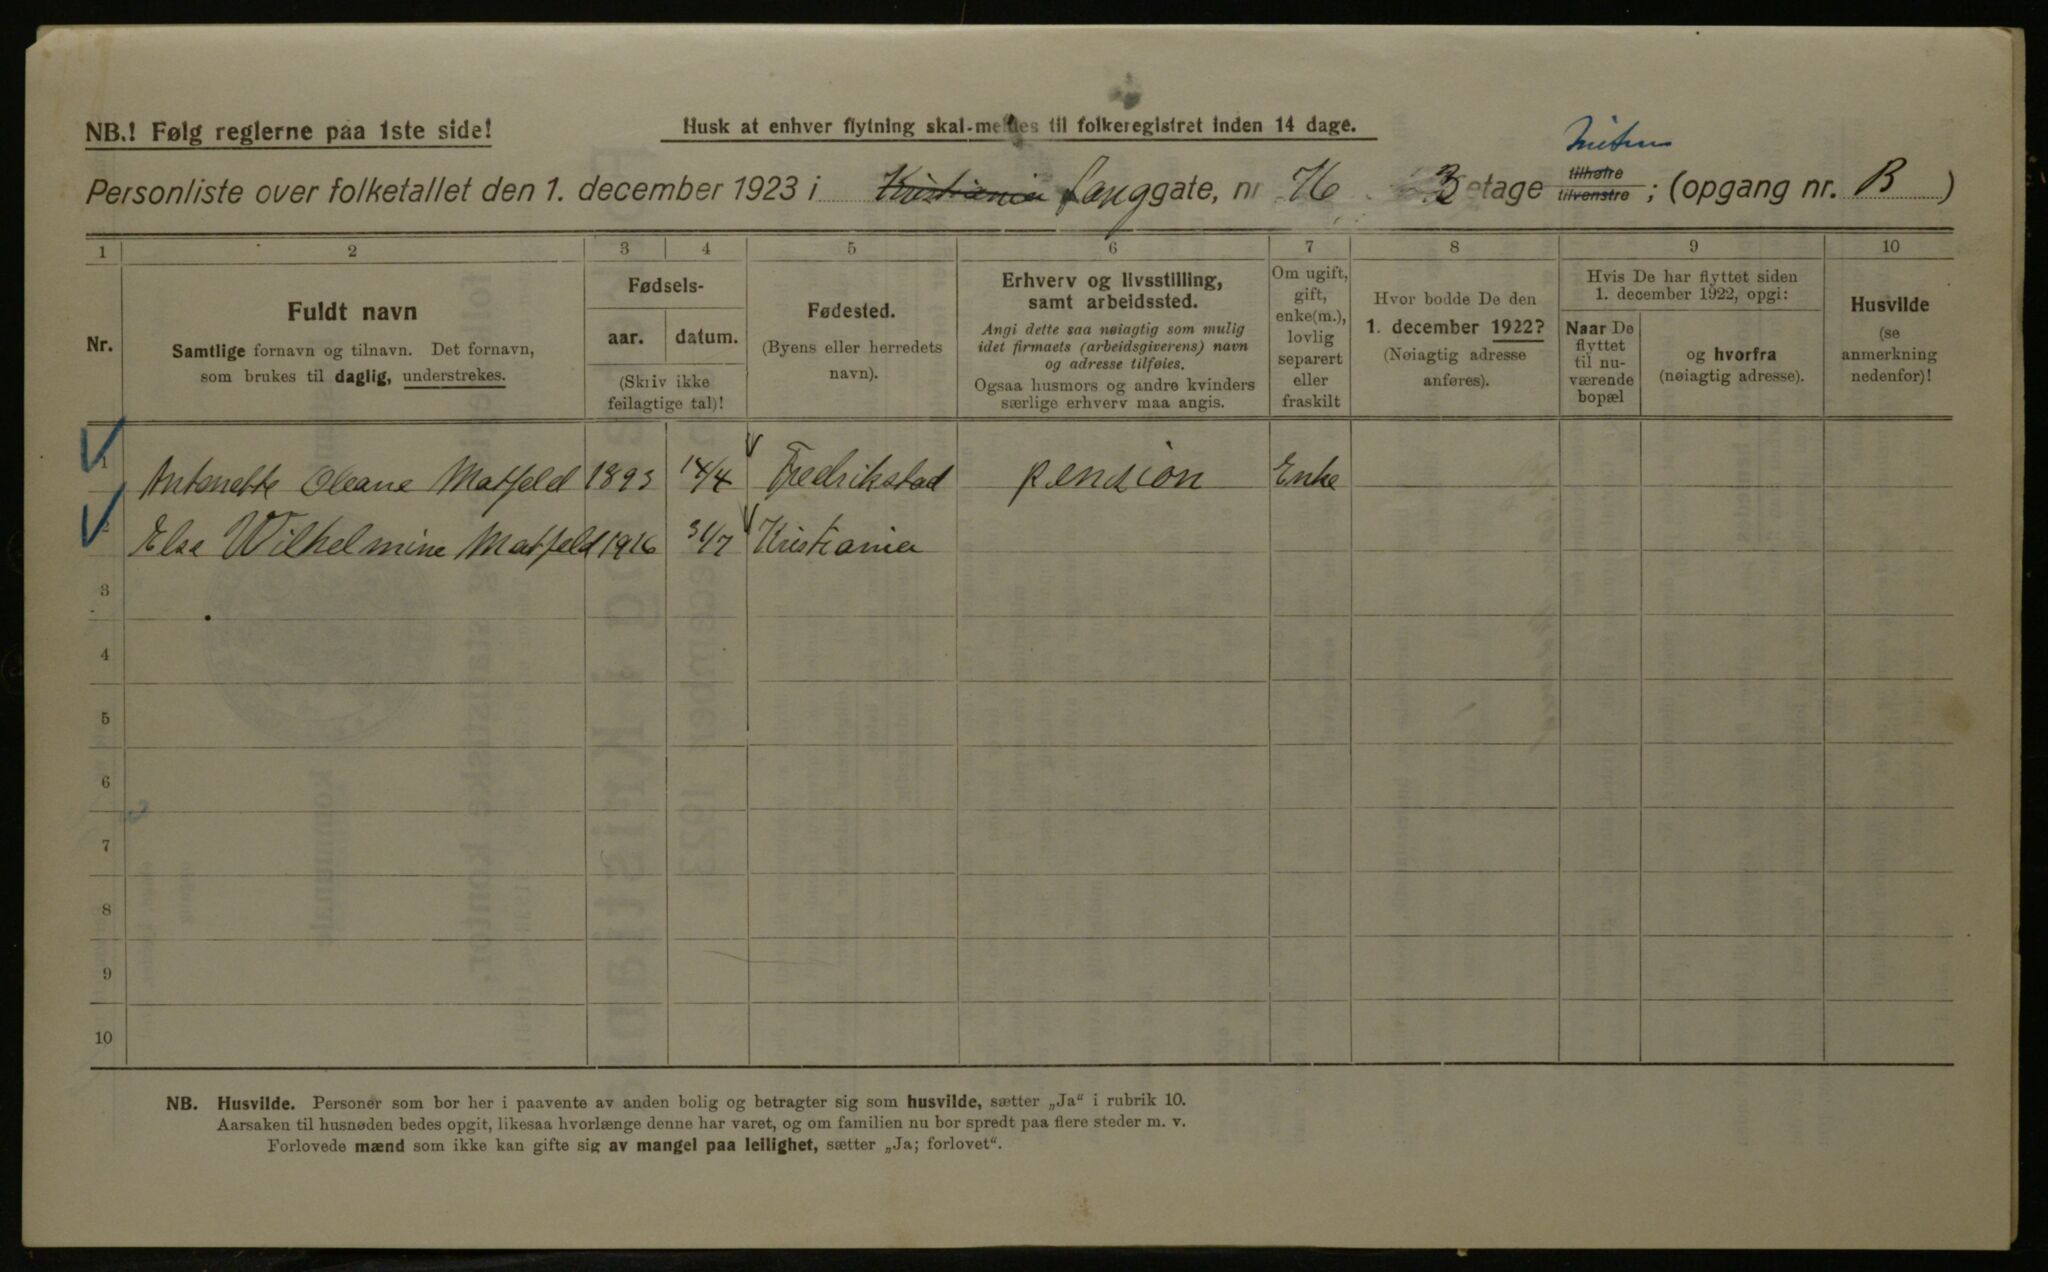 NB.! Følg reglerne paa 1ste side!
Husk at enhver flytning skal meldes til folkeregistret inden 14 dage.
Personliste over folketallet den 1. december 1923 i Kristiania Langgate, nr. 3 etage tilhøire tilvenstre ; (opgang nr. B )
1 2 3 4 5 6 7 8 9 10
Nr.
Fuldt navn
Samtlige fornavn og tilnavn. Det fornavn,
som brukes til daglig, understrekes.
Fødsels-
aar. datum.
(Skriv ikke
feilagtige tal)!
Fødested.
(Byens eller herredets
navn).
Erhverv og livsstilling,
samt arbeidssted.
Angi dette saa nøiagtig som mulig
idet firmaets (arbeidsgiverens) navn
og adresse tilføies.
Ogsaa husmors og andre kvinders
særlige erhverv maa angis.
Om ugift,
gift,
enke(m.),
lovlig
separert
eller
fraskilt
Hvor bodde De den
1. december 1922?
(Nøiagtig adresse
anføres).
Hvis De har flyttet siden
1. december 1922, opgi:
Naar De
flyttet
til nu-
værende
bopæl
og hvorfra
(nøiagtig adresse).
Husvilde
(se
anmerkning
nedenfor)!
1 Antonette Oleane Matfeld 1893 14/4 Fredrikstad pension Enke
2 Else Wilhelmine Matfeld 1916 31/7 Kristiania
3
4
5
6
7
8
9
10
NB. Husvilde. Personer som bor her i paavente av anden bolig og betragter sig som husvilde, sætter „Ja“ i rubrik 10.
Aarsaken til husnøden bedes opgit, likesaa hvorlænge denne har varet, og om familien nu bor spredt paa flere steder m. v.
Forlovede mænd som ikke kan gifte sig av mangel paa leilighet, sætter „Ja; forlovet“.